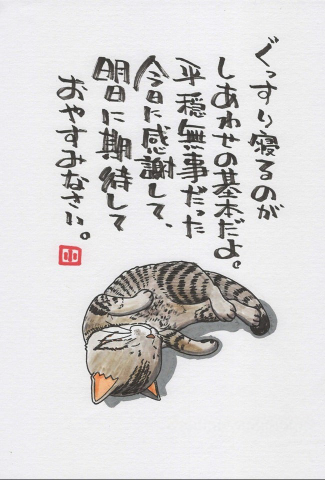 ぐっすり寝るのが
しあわせの基本だよ。
平穏無事だった
今日に感謝して、
明日に期待して
おやすみなさい。